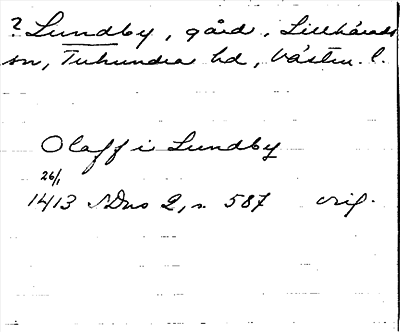 ? Lundby, gård, Lillhärads
sn, Tuhundra hd, Västm. l.
Olaff i Lundby
26/1
1413 SDns 2, s. 587 orig.